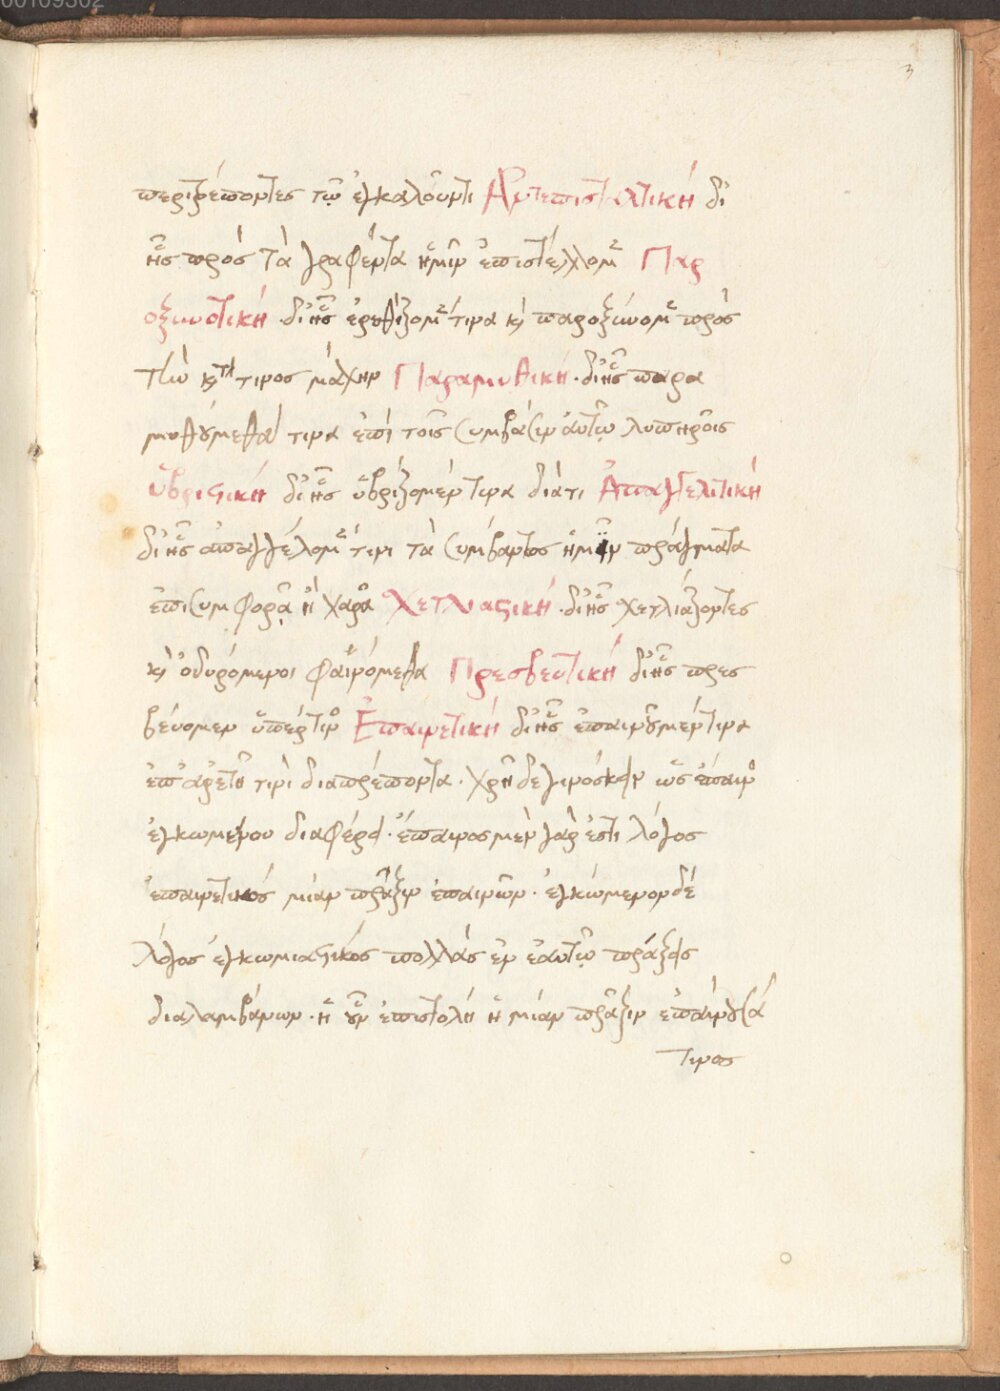 00109302
3
περιτρέποντες τῷ ἐγκαλοῦντι Ἀντεπισταλτική δι
ἧς πρὸς τὰ γραφέντα ἡμῖν ἐπιστέλλομεν Παρ
οξυντική · δι' ἧς ἐρεθίζομεν τινα κὶ παροξύνομεν πρὸς
τὴν κτ τινος μάχην Παραμυθική · δι' ἧς παρα
μυθούμεθα τινα ἐπὶ τοῖς συμβᾶσιν αὐτῷ λυπηροῖς
ὑβριστική δι' ἧς ὑβρίζομέν τινα διά τι Ἀπαγγελτική
δι' ἧς ἀπαγγέλομεν τινι τὰ συμβάντος ἡμῖν πράγματα
ἐπι συμφορᾷ ἢ χαρᾷ Χετλιαστική · δι' ἧς χετλιάζοντες
κὶ ὀδυρόμενοι φαινόμεθα Πρεσβευτική δι' ἧς πρεσ
βεύομεν ὑπέρ τινος Ἐπαινετική δι' ἧς ἐπαινοῦμέν τινα
ἐπ' ἀρετῇ τινὶ διαπρέποντα · χρὴ δὲ γινώσκειν ὡς ἔπαινος
ἐγκωμείου διαφέρει · ἔπαινος μὲν γάρ ἐστι λόγος
ἐπαινετικός μίαν πρᾶξιν ἐπαινῶν · ἐγκώμενον δέ
λόγος ἐγκωμιαστικός πολλάς ἐν ἑαυτῷ πράξεις
διαλαμβάνων · ἡ οὖν ἐπιστολή ἡ μίαν πρᾶξιν ἐπαινοῦσά
τινος